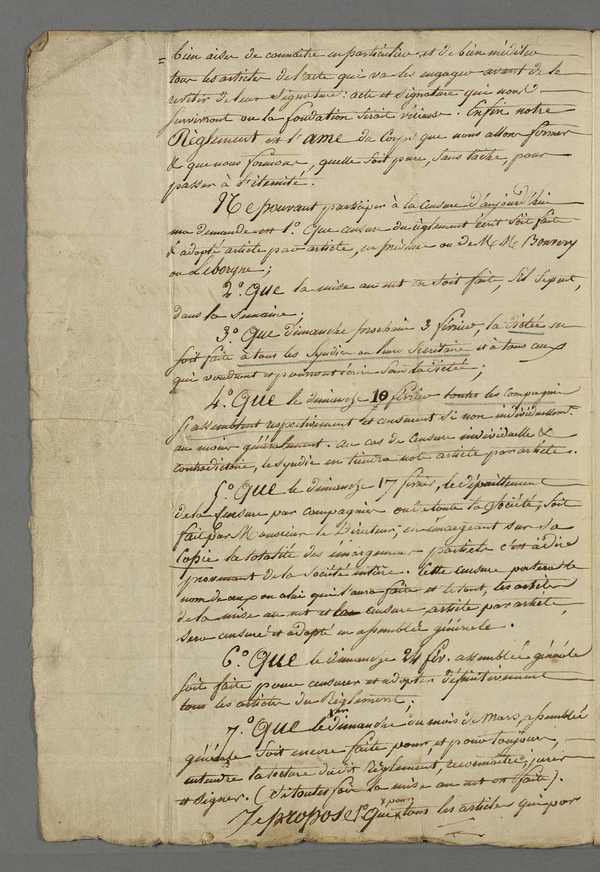 bien aises de connaitre en particulier et de bien méditer
tous les articles de l'acte qui va les engager avant de le
revêtir de leur signature: acte et signature qui nous
survivront ou la fondation serait vicieuse. Enfin notre
Règlement est l'ame du Corps que nous allons former
& que nous formons, quelle soit pure, sans tache, pour
passer à l'éternité.
Ne pouvant participer à la censure d'aujourd'hui
ma demande est 1.° Que censure du règlement écrit soit faite
& adopté article par article, en présence ou de M. M.
ou Leborgne;
2.° Que la mise au net en soit faite, s'il se peut,
dans la semaine;
3.° Que dimanche prochain 3 février la dictée en
soit faite à tous les Syndics ou leurs Secrétaires et à tous ceux
qui voudront et pourront écrire sous la dictée;
4.° Que le dimanche 10 février toutes les compagnies
s'assemblent respectivement et censurent si non individuellem.t
au moins généralement. au cas de censure individuelle &
contradictoire, le syndic en tiendra note article par article.
5.° Que le dimanche 17 février, le dépouillement
de la censure par compagnies ou de toute la Société, soit
fait par Monsieur le Directeur; en émargeant sur sa
Copie la totalité des émargemens partiels c'est à dire
provenant de la Société entière. Cette censure portera le
nom de ceux ou celui qui l'aura faite et le tout, les articles
de la mise au net et la censure, article par article,
sera censuré et adopté en assemblée générale.
6.° Que le dimanche 24 fév. assemblée générale
soit faite pour censurer et adopter définitivement
tous les articles du Règlement;
7.° Que le 1er dimanche du mois de Mars, assemblée
générale soit encore faite, pour, et pour toujours,
entendre la lecture dudit Règlement, reconnaitre, jurer
et signer. (si toutes fois la mise au net est faite).
Je propose 1.° Que & pour tous les articles qui par